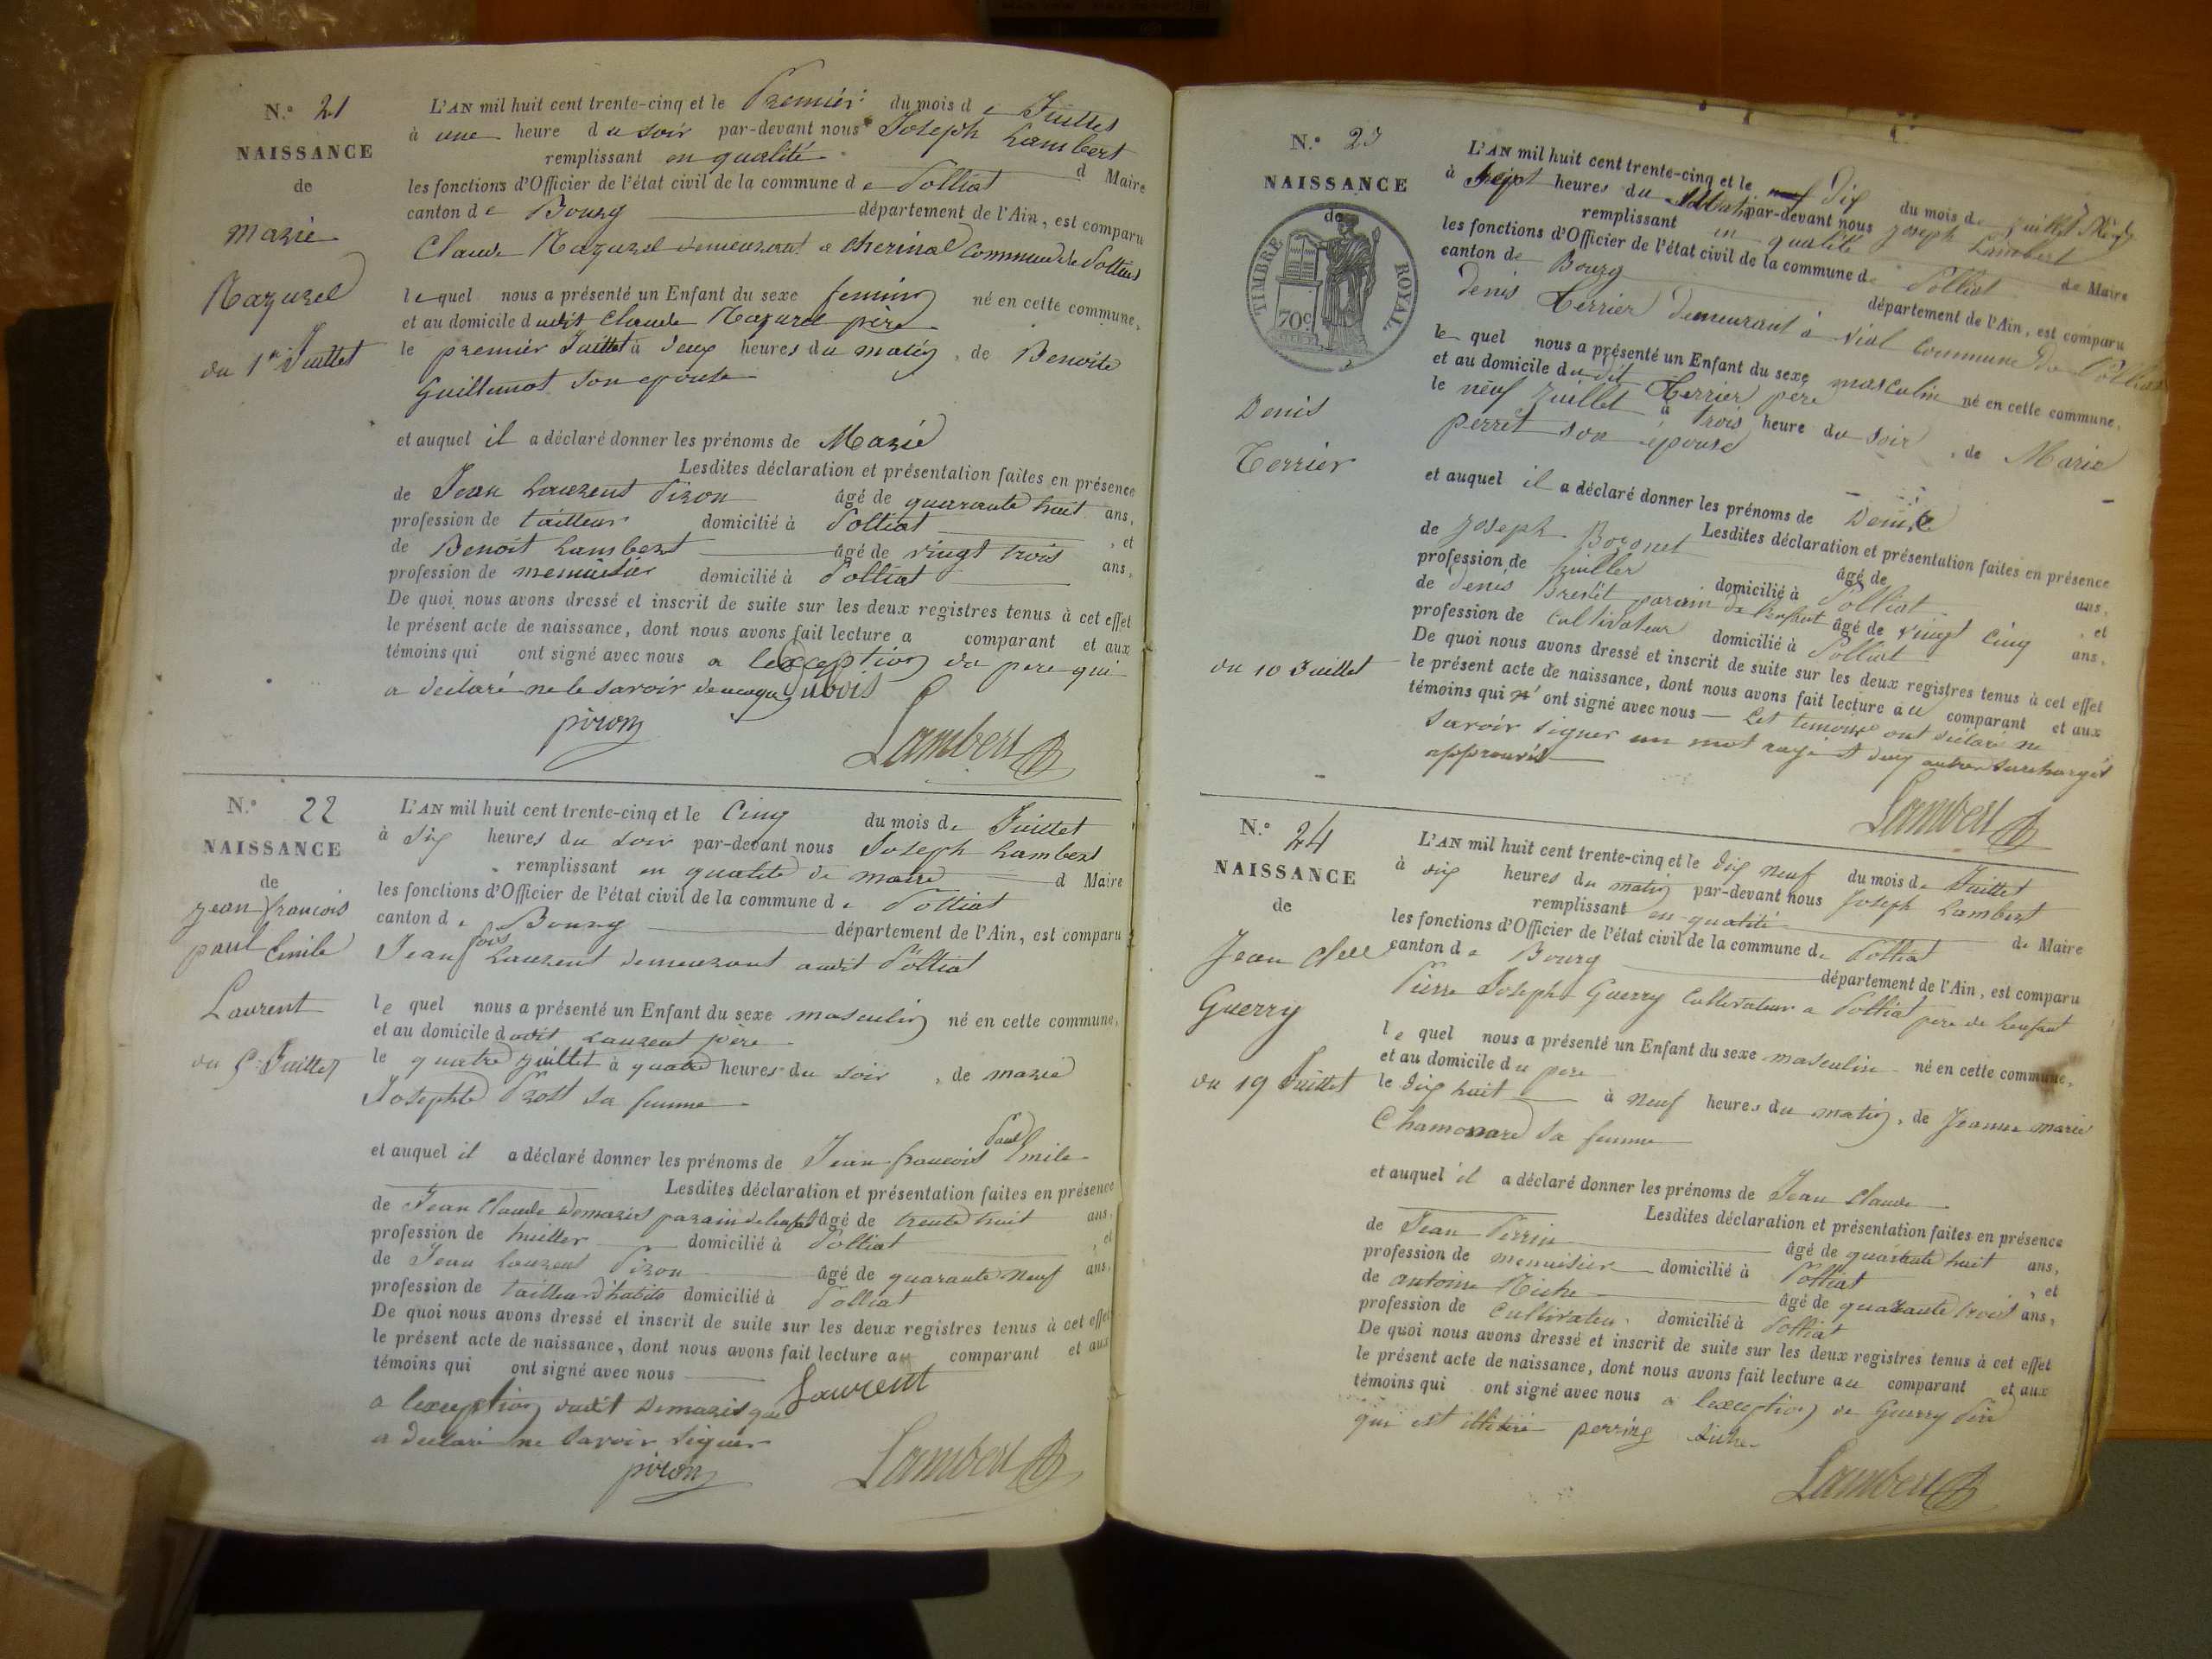 N.º 21
NAISSANCE
de
Marie
Mazurel
du 1er Juillet
L'AN mil huit cent trente-cinq et le Premier du mois de Juillet
à une heure du soir par-devant nous Joseph Lambert
remplissant en qualité d Maire
les fonctions d'Officier de l'état civil de la commune de Polliat
canton de Bourg département de l'Ain, est comparu
Claude demeurant a commune de Polliat
lequel nous a présenté un Enfant du sexe feminin né en cette commune,
et au domicile dudit Claude père
le premier Juillet à deux heures du matin, de Benoite
Guillemot son epouse
et auquel il a déclaré donner les prénoms de Marie
Lesdites déclaration et présentation faites en présence
de Jean Laurent Piron âgé de quarante huit ans,
profession de tailleur domicilié à Polliat , et
de Benoit Lambert âgé de vingt trois ans,
profession de menuisier domicilié à Polliat
De quoi nous avons dressé et inscrit de suite sur les deux registres tenus à cet effet
le présent acte de naissance, dont nous avons fait lecture a comparant et aux
témoins qui ont signé avec nous a lexception du pere qui
a declaré ne le savoir
piron Lambert
N.º 22
NAISSANCE
de
jean francois
paul Emile
Laurent
du 5 Juillet
L'AN mil huit cent trente-cinq et le Cinq du mois de Juillet
à Six heures du soir par-devant nous Joseph Lambert
remplissant en qualité de maire d Maire
les fonctions d'Officier de l'état civil de la commune de Polliat
canton de Bourg département de l'Ain, est comparu
Jean fois Laurent demeurant audit Polliat
lequel nous a présenté un Enfant du sexe masculin né en cette commune,
et au domicile dudit Laurent père
le quatre juillet à quatre heures du soir , de marie
Josephte Prost sa femme
et auquel il a déclaré donner les prénoms de Jean francois Paul Emile
Lesdites déclaration et présentation faites en présence
de Jean Claude Demaris parain de lenfant âgé de trente huit ans,
profession de huiller domicilié à Polliat , et
de Jean Laurent Piron âgé de quarante neuf ans,
profession de tailleur d'habits domicilié à Polliat
De quoi nous avons dressé et inscrit de suite sur les deux registres tenus à cet effet
le présent acte de naissance, dont nous avons fait lecture au comparant et aux
témoins qui ont signé avec nous
a lexception dudit Demaris qui Laurent
a declaré ne savoir signer
piron Lambert
N.º 23
NAISSANCE
de
TIMBRE ROYAL.
70c
Denis
Terrier
du 10 Juillet
L'AN mil huit cent trente-cinq et le neuf Dix du mois de juillet
à Sept heures du Matin par-devant nous joseph Lambert
remplissant en qualité de Maire
les fonctions d'Officier de l'état civil de la commune de Polliat
canton de Bourg département de l'Ain, est comparu
Denis Terrier demeurant à Vial commune de Polliat
lequel nous a présenté un Enfant du sexe masculin né en cette commune,
et au domicile dudit Terrier père
le neuf juillet à trois heure du soir , de Marie
perret son épouse
et auquel il a déclaré donner les prénoms de Denis
Lesdites déclaration et présentation faites en présence
de joseph Bozonet âgé de ans,
profession de huiller domicilié à Polliat , et
de denis parain de l'enfant âgé de vingt cinq ans,
profession de cultivateur domicilié à Polliat
De quoi nous avons dressé et inscrit de suite sur les deux registres tenus à cet effet
le présent acte de naissance, dont nous avons fait lecture au comparant et aux
témoins qui n' ont signé avec nous Les temoins ont déclaré ne
savoir signer un mot rayé et deux autres surchargés
approuvés
Lambert
N.º 24
NAISSANCE
de
Jean Cl
Guerry
du 19 Juillet
L'AN mil huit cent trente-cinq et le dix neuf du mois de Juillet
à six heures du matin par-devant nous Joseph Lambert
remplissant en qualité de Maire
les fonctions d'Officier de l'état civil de la commune de Polliat
canton de Bourg département de l'Ain, est comparu
Pierre Joseph Guerry Cultivateur a Polliat pere de lenfant
lequel nous a présenté un Enfant du sexe masculin né en cette commune,
et au domicile du pere
le dix huit à neuf heures du matin, de Jeanne marie
Chamonard sa femme
et auquel il a déclaré donner les prénoms de Jean Claude
Lesdites déclaration et présentation faites en présence
de Jean Perrin âgé de quarante huit ans,
profession de menuisier domicilié à Polliat , et
de antoine âgé de quarante trois ans,
profession de Cultivateur domicilié à Polliat
De quoi nous avons dressé et inscrit de suite sur les deux registres tenus à cet effet
le présent acte de naissance, dont nous avons fait lecture au comparant et aux
témoins qui ont signé avec nous a lexception de Guerry Pere
qui est illitéré perrin
Lambert